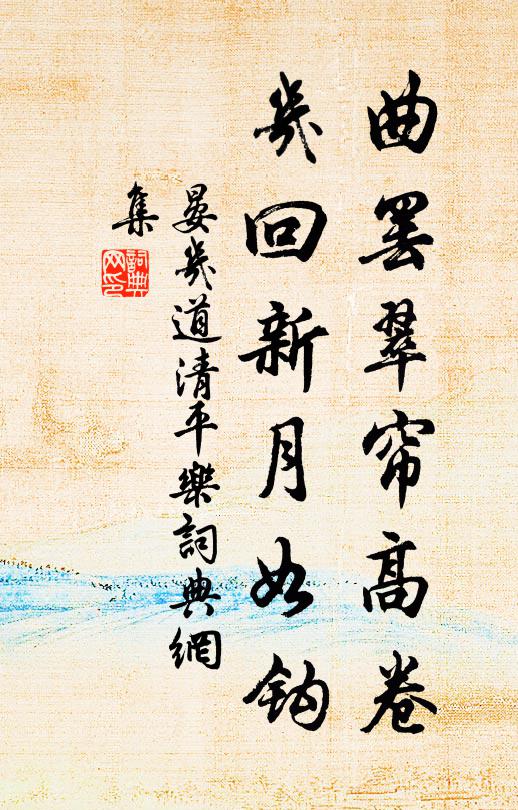 曲罢翠帘高卷
几回新月如钩
晏几道清平樂詞典網
集
詞典
网印